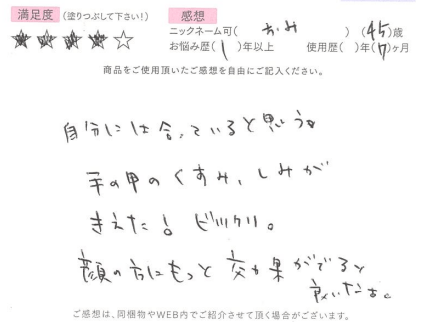 満足度 (塗りつぶして下さい!) 感想
★★★★☆
ニックネーム可( おみ ) (45)歳
お悩み歴( 1 )年以上 使用歴( )年(7)ヶ月
商品をご使用頂いたご感想を自由にご記入ください。
自分には合っていると思う。
手の甲のくすみ、しみが
きえた! ビックリ。
顔の方にもっと効果がでると
良いなぁ。
ご感想は、同梱物やWEB内でご紹介させて頂く場合がございます。